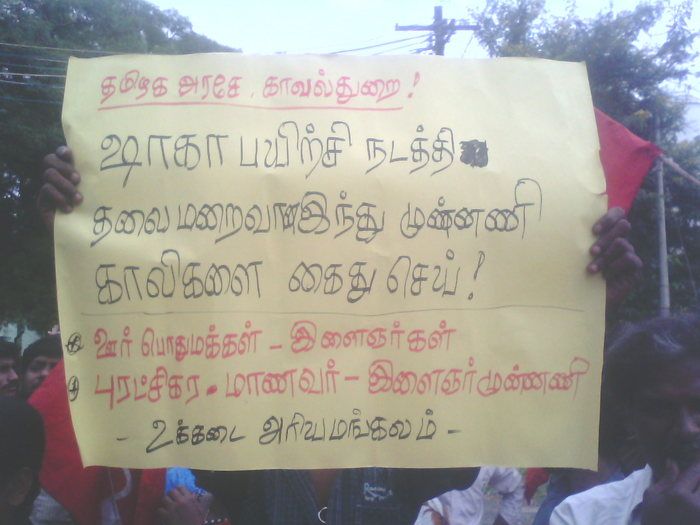 தமிழக அரசே, காவல்துறை!
ஷாகா பயிற்சி நடத்தி
தலைமறைவான இந்து முன்னணி
காலிகளை கைது செய்!
ஊர் பொதுமக்கள் - இளைஞர்கள்
புரட்சிகர - மாணவர் - இளைஞர் முன்னணி
- உக்கடை அரியமங்கலம் -